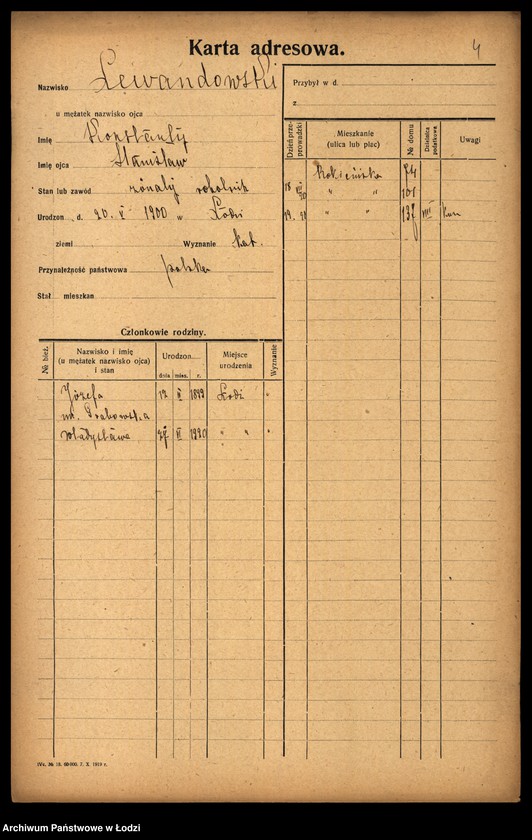 Karta adresowa.
4
Nazwisko Lewandowski
u mężatek nazwisko ojca
Imię Konstanty
Imię ojca Stanisław
Stan lub zawód żonaty robotnik
Urodzon d. 20. V 1900 w Łodzi
ziemi Wyznanie kat.
Przynależność państwowa polska
Stał mieszkan
Przybył w d.
z
Dzień przeprowadzki
Mieszkanie (ulica lub plac)
№ domu
Dzielnica podatkowa
Uwagi
Rokicińska 74
18 " " 101
" " 137 VIII
Członkowie rodziny.
№ bież.
Nazwisko i imię (u mężatek nazwisko ojca) i stan
Urodzon
dnia mies. r.
Miejsce urodzenia
Wyznanie
Józefa 12 1899 Łodzi "
Władysława 27 1920 " " "
IVc. № 18. 60000. 7. X. 1919 r.
Archiwum Państwowe w Łodzi